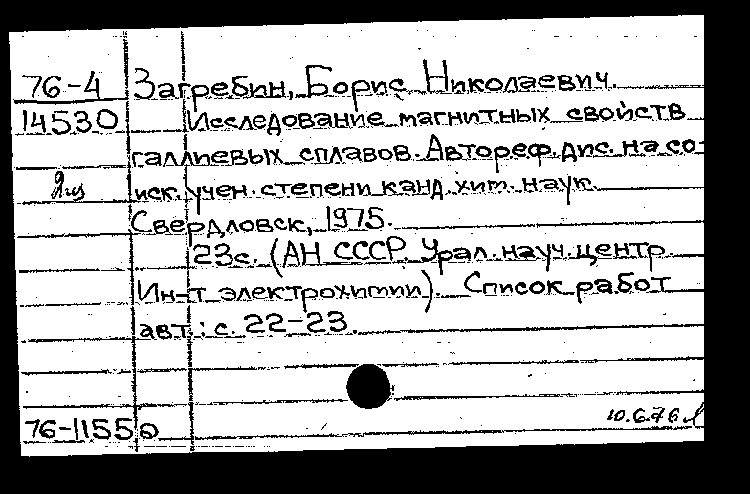 76-4 Загребин, Борис Николаевич.
14530 Исследование магнитных свойств
галлиевых сплавов. Автореф. дис. на со-
иск. учен. степени канд. хим. наук.
Свердловск, 1975.
23с. (АН СССР. Урал. науч. центр.
Ин-т электрохимии). Список работ
авт.: с. 22-23.
10.6.76
76-1155